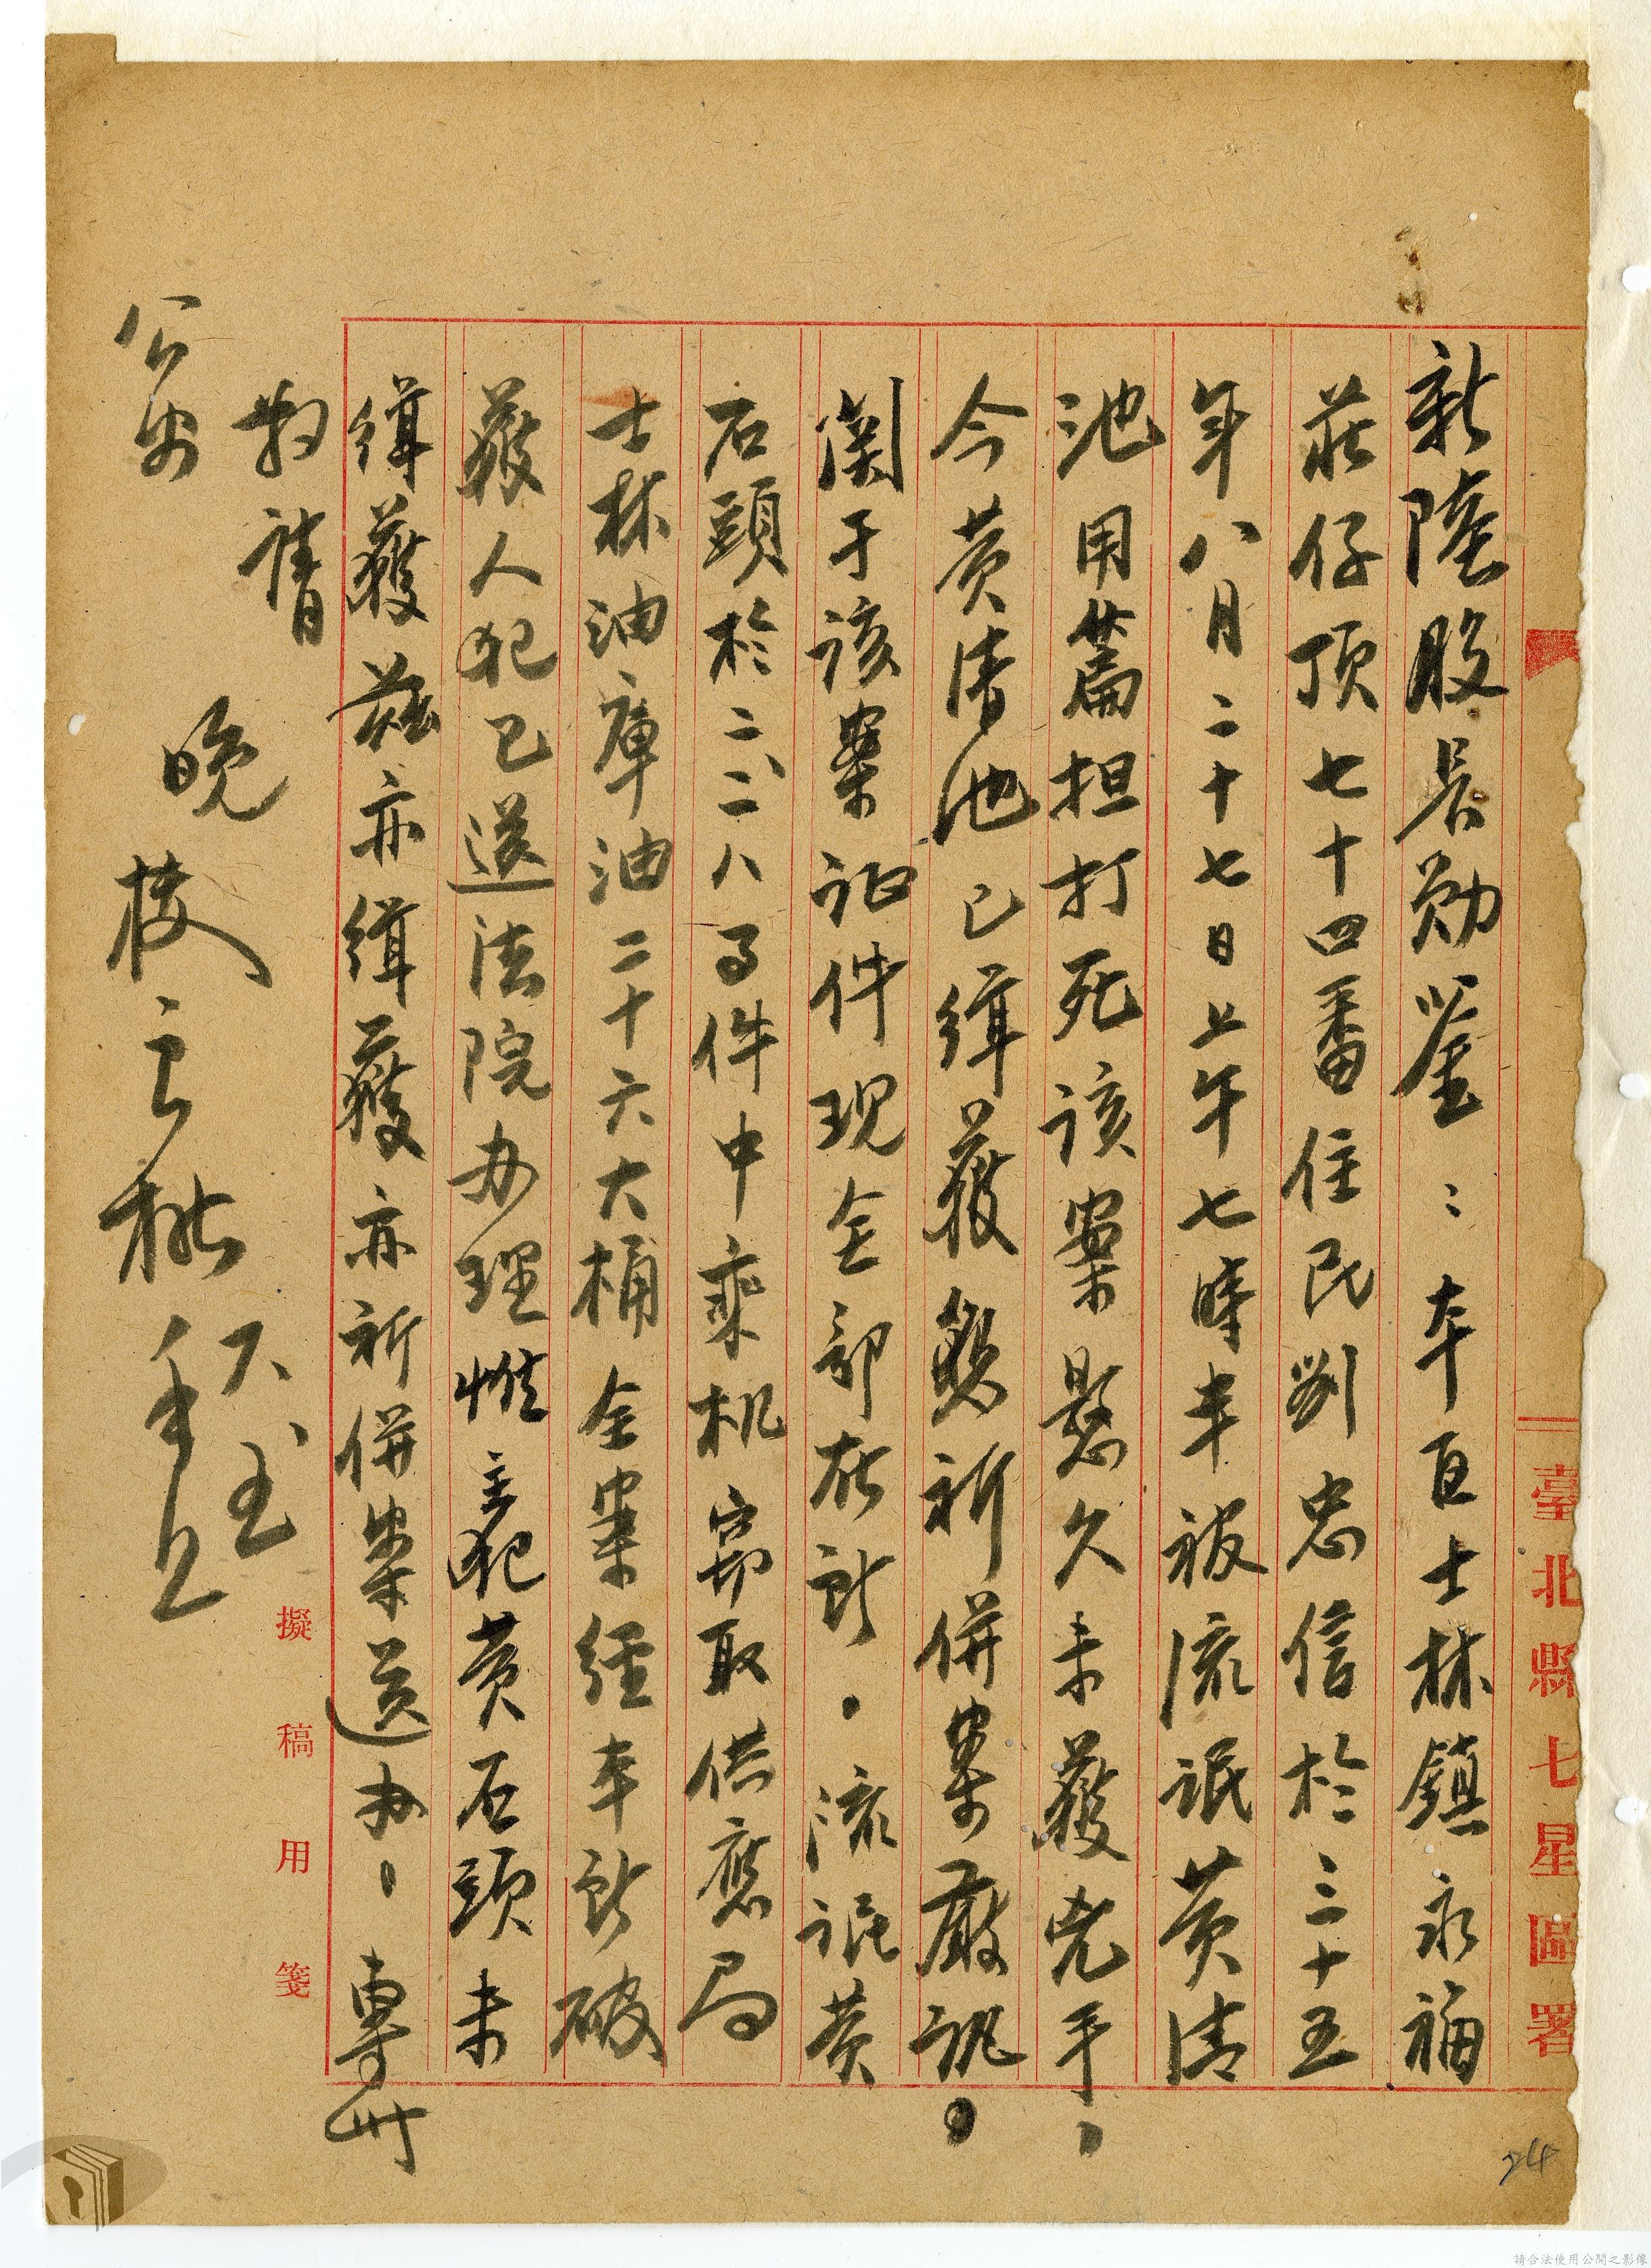 臺北縣七星區署
新陸股長勛鑒：本區士林鎮永福
莊仔頂七十四番住民劉忠信於三十五
年八月二十七日上午七時半被流氓黃清
池用扁担打死該案懸久未獲兇手、
今黃清池已緝獲懇祈併案嚴訊。
関于該案証件現全部在所。流氓黃
石頭於二、二八事件中乘机竊取供應局
士林油庫油二十六大桶全案經本所破
獲人犯已送法院办理惟主犯黃石頭未
緝獲茲亦緝獲亦祈併案送办、專此
敬請
公安
晚
弍、玉
擬稿用箋
24
請合法使用公開之影像